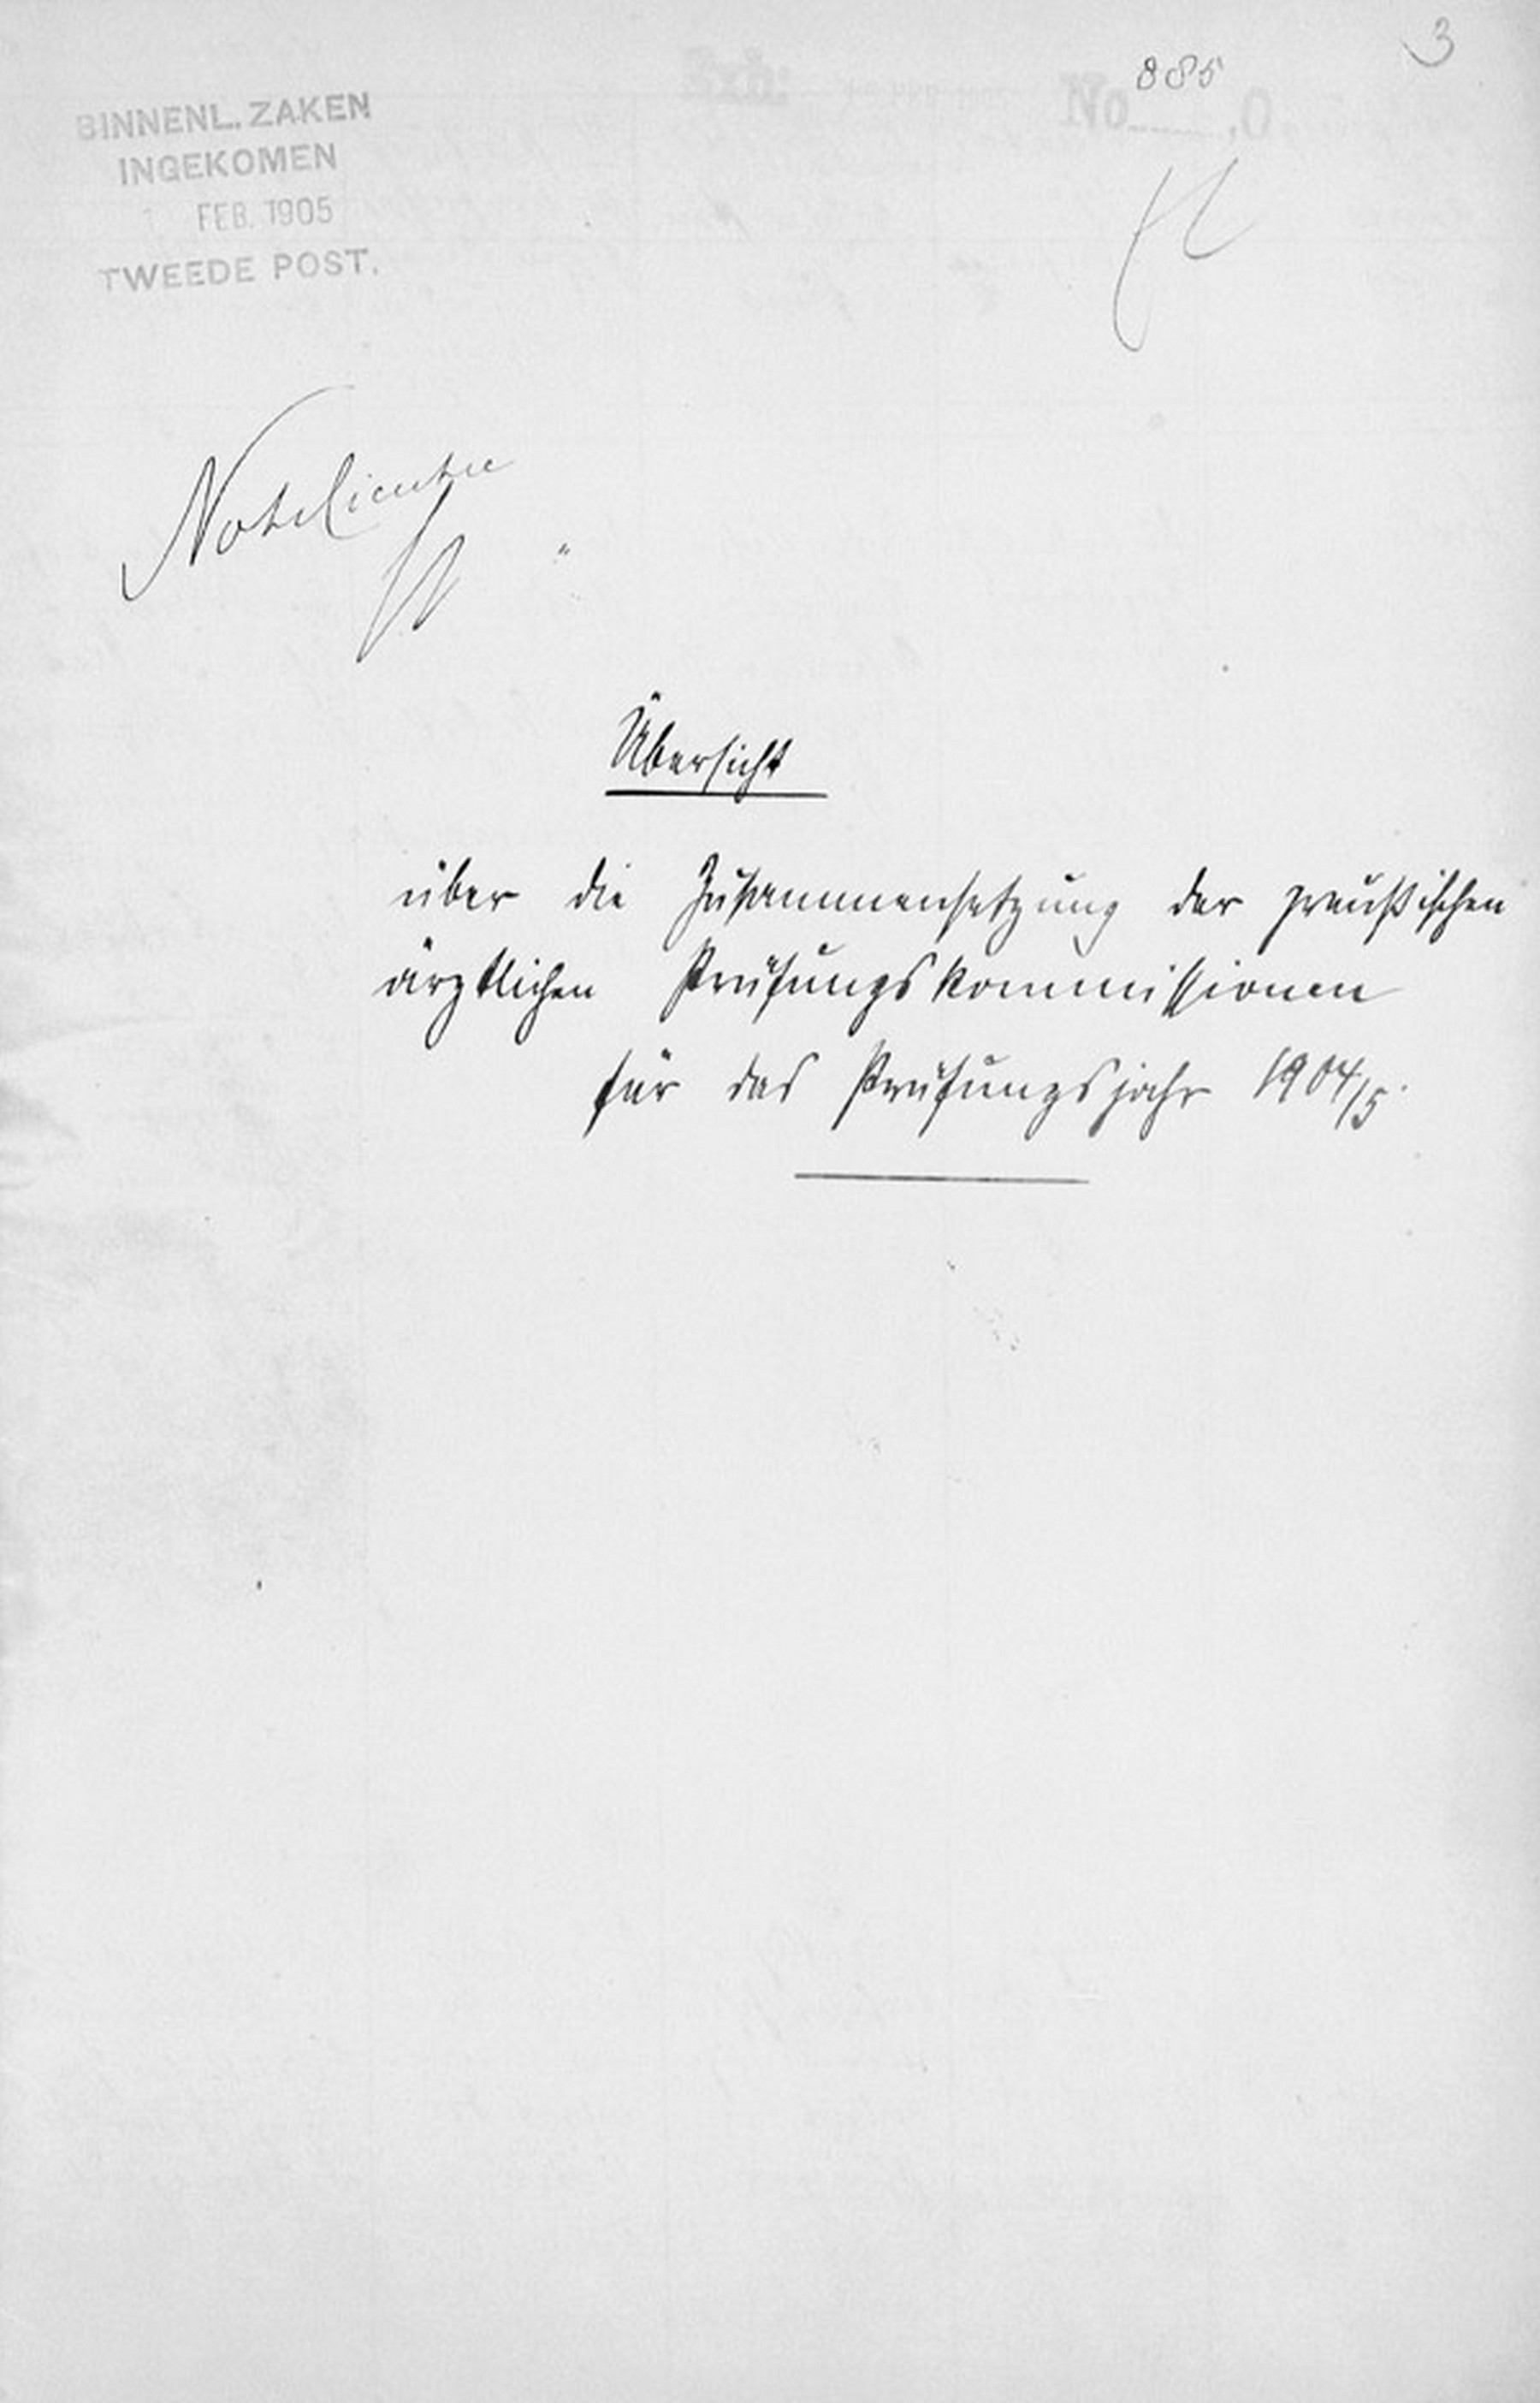 3
885
No ,O.
BINNENL. ZAKEN
INGEKOMEN
FEB. 1905
TWEEDE POST.
Übersicht
über die Zusammensetzung der preußischen
ärztlichen Prüfungskommissionen
für das Prüfungsjahr 1904/5.